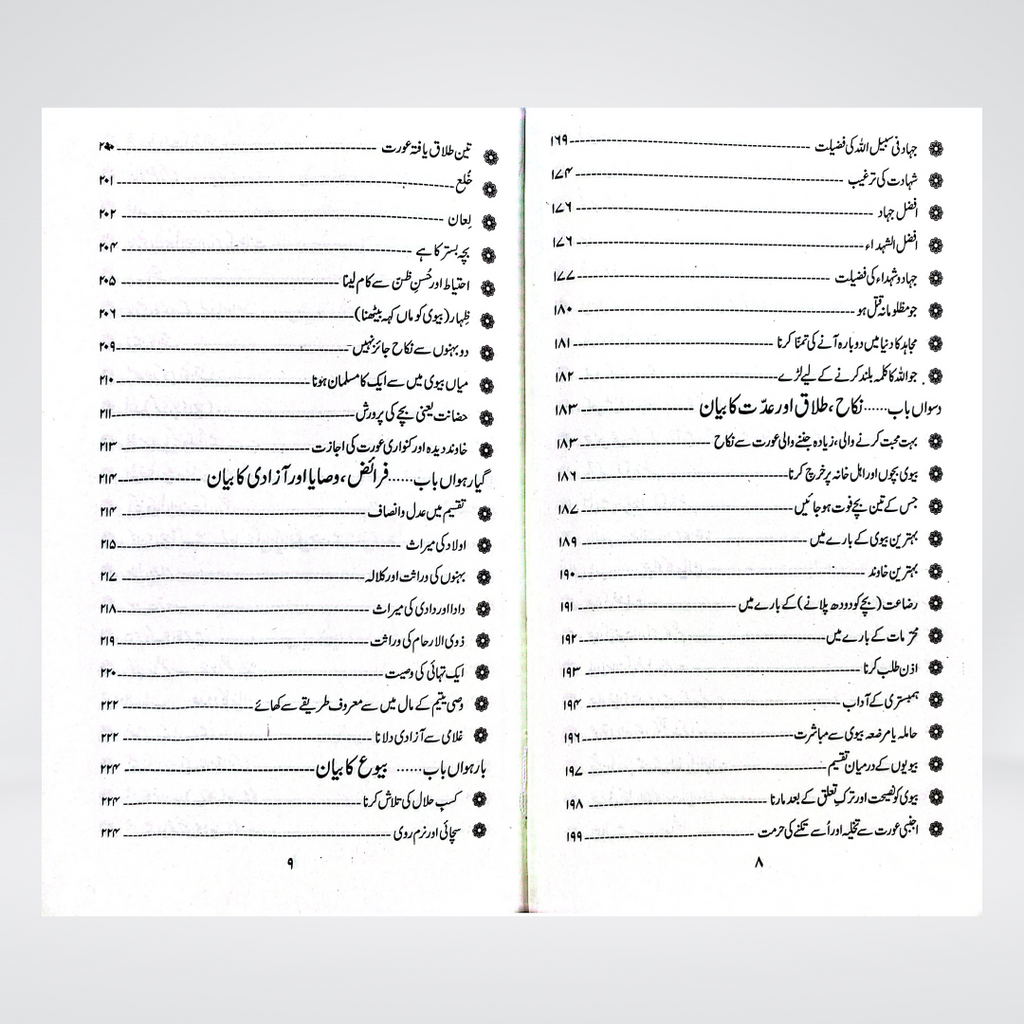 جہاد فی سبیل اللہ کی فضیلت ۱۶۹
شہادت کی ترغیب ۱۷۴
افضل جہاد ۱۷۶
افضل الشہداء ۱۷۶
جہاد و شہداء کی فضیلت ۱۷۷
جو مظلومانہ قتل ہو ۱۸۰
مجاہد کا دنیا میں دوبارہ آنے کی تمنّا کرنا ۱۸۱
جو اللہ کا کلمہ بلند کرنے کے لیے لڑے ۱۸۲
دسواں باب...... نکاح، طلاق اور عدّت کا بیان ۱۸۳
بہت محبت کرنے والی، زیادہ جننے والی عورت سے نکاح ۱۸۳
بیوی بچوں اور اہل خانہ پر خرچ کرنا ۱۸۶
جس کے تین بچے فوت ہو جائیں ۱۸۷
بہترین بیوی کے بارے میں ۱۸۹
بہترین خاوند ۱۹۰
رضاعت (بچے کو دودھ پلانے) کے بارے میں ۱۹۱
محرّمات کے بارے میں ۱۹۲
اذن طلب کرنا ۱۹۳
ہمبستری کے آداب ۱۹۴
حاملہ یا مرضعہ بیوی سے مباشرت ۱۹۶
بیویوں کے درمیان تقسیم ۱۹۷
بیوی کو نصیحت اور ترکِ تعلق کے بعد مارنا ۱۹۸
اجنبی عورت سے تخلیہ اور اُسے تکنے کی حرمت ۱۹۹
۸
تین طلاق یافتہ عورت ۲۰۰
خُلع ۲۰۱
لِعان ۲۰۲
بچہ بستر کا ہے ۲۰۴
احتیاط اور حُسنِ ظنّ سے کام لینا ۲۰۵
ظِہار (بیوی کو ماں کہہ بیٹھنا) ۲۰۶
دو بہنوں سے نکاح جائز نہیں ۲۰۹
میاں بیوی میں سے ایک کا مسلمان ہونا ۲۱۰
حضانت یعنی بچے کی پرورش ۲۱۱
خاوند دیدہ اور کنواری عورت کی اجازت ۲۱۳
گیارہواں باب...... فرائض، وصایا اور آزادی کا بیان ۲۱۴
تقسیم میں عدل و انصاف ۲۱۴
اولاد کی میراث ۲۱۵
بہنوں کی وراثت اور کلالہ ۲۱۷
دادا اور دادی کی میراث ۲۱۸
ذوی الارحام کی وراثت ۲۱۹
ایک تہائی کی وصیت ۲۲۰
وصی یتیم کے مال میں سے معروف طریقے سے کھائے ۲۲۲
غلامی سے آزادی دلانا ۲۲۲
بارہواں باب...... بیوع کا بیان ۲۲۴
کسبِ حلال کی تلاش کرنا ۲۲۴
سچائی اور نرم روی ۲۲۴
۹